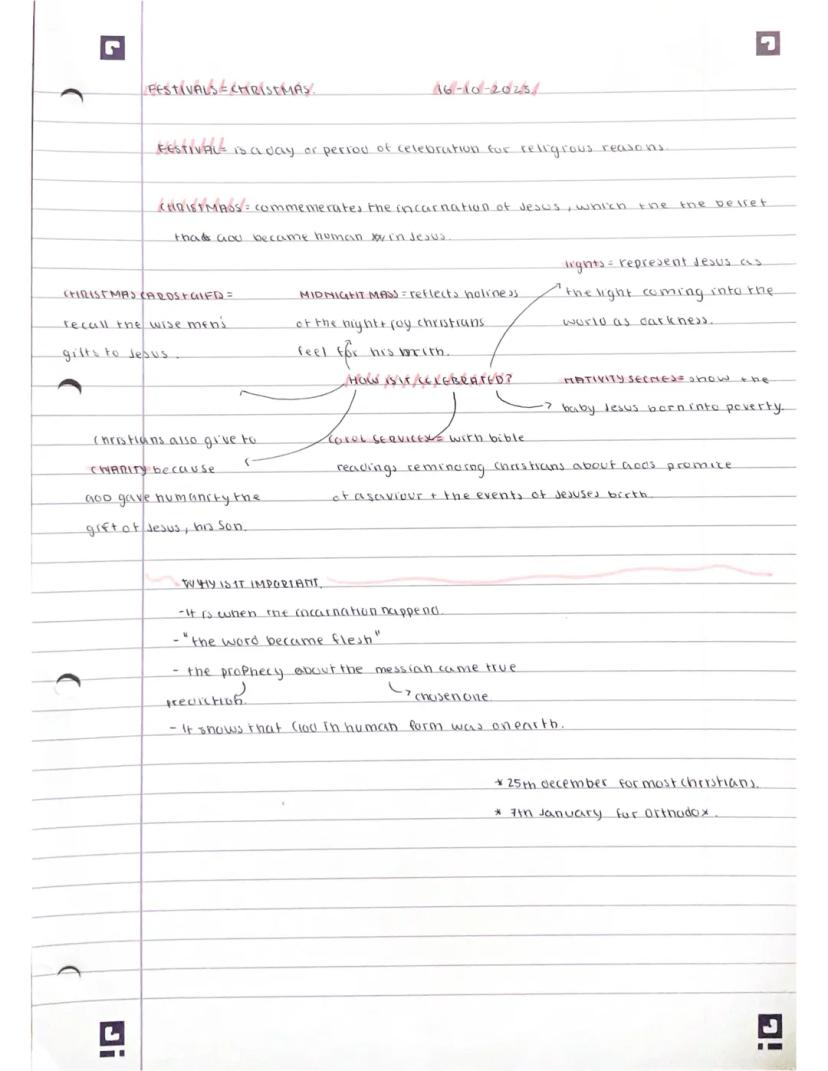 FESTIVALS = CHRISTMAS. 16-10-2025
FESTIVAL = is a day or period of celebration for religious reasons.
CHRISTMASS = commemerates the incarnation of Jesus, which the the belief
that God became human in Jesus.
lights = represent Jesus as
the light coming into the
world as darkness.
CHRISTMAS CARDS + GIFD =
recall the wise men's
gifts to Jesus.
MIDNIGHT MASS = reflects holiness
of the night + joy christians
feel for his birth.
HOW IS IT CELEBRATED?
NATIVITY SECNES = show the
baby Jesus born into poverty.
Christians also give to
CHARITY because
GOD gave humanity the
gift of Jesus, his son.
CAROL SERVICES = with bible
readings reminding christians about Gods promise
of a saviour + the events of Jesuses birth.
WHY IS IT IMPORTANT.
-It is when the incarnation happend.
-"the word became flesh"
- the prophecy about the messiah came true
prediction. chosen one
- It shows that God in human form was on earth.
* 25th december for most christians.
* 7th January for Orthodox.